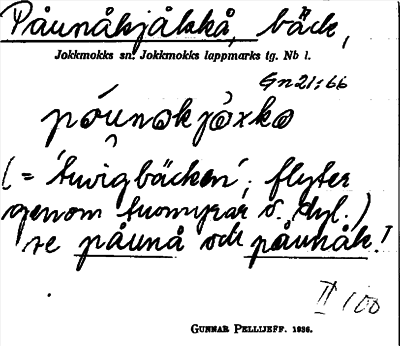 Påunåkjåkkå, bäck,
Jokkmokks sn. Jokkmokks lappmarks tg. Nb l.
Gn 21:66
påunɷkjåxkɷ
(= 'tuvigbäcken'; flyter
genom tuvmyrar o. dyl.)
se påunå och påunåk.
II 100
GUNNAR PELLIJEFF. 1936.